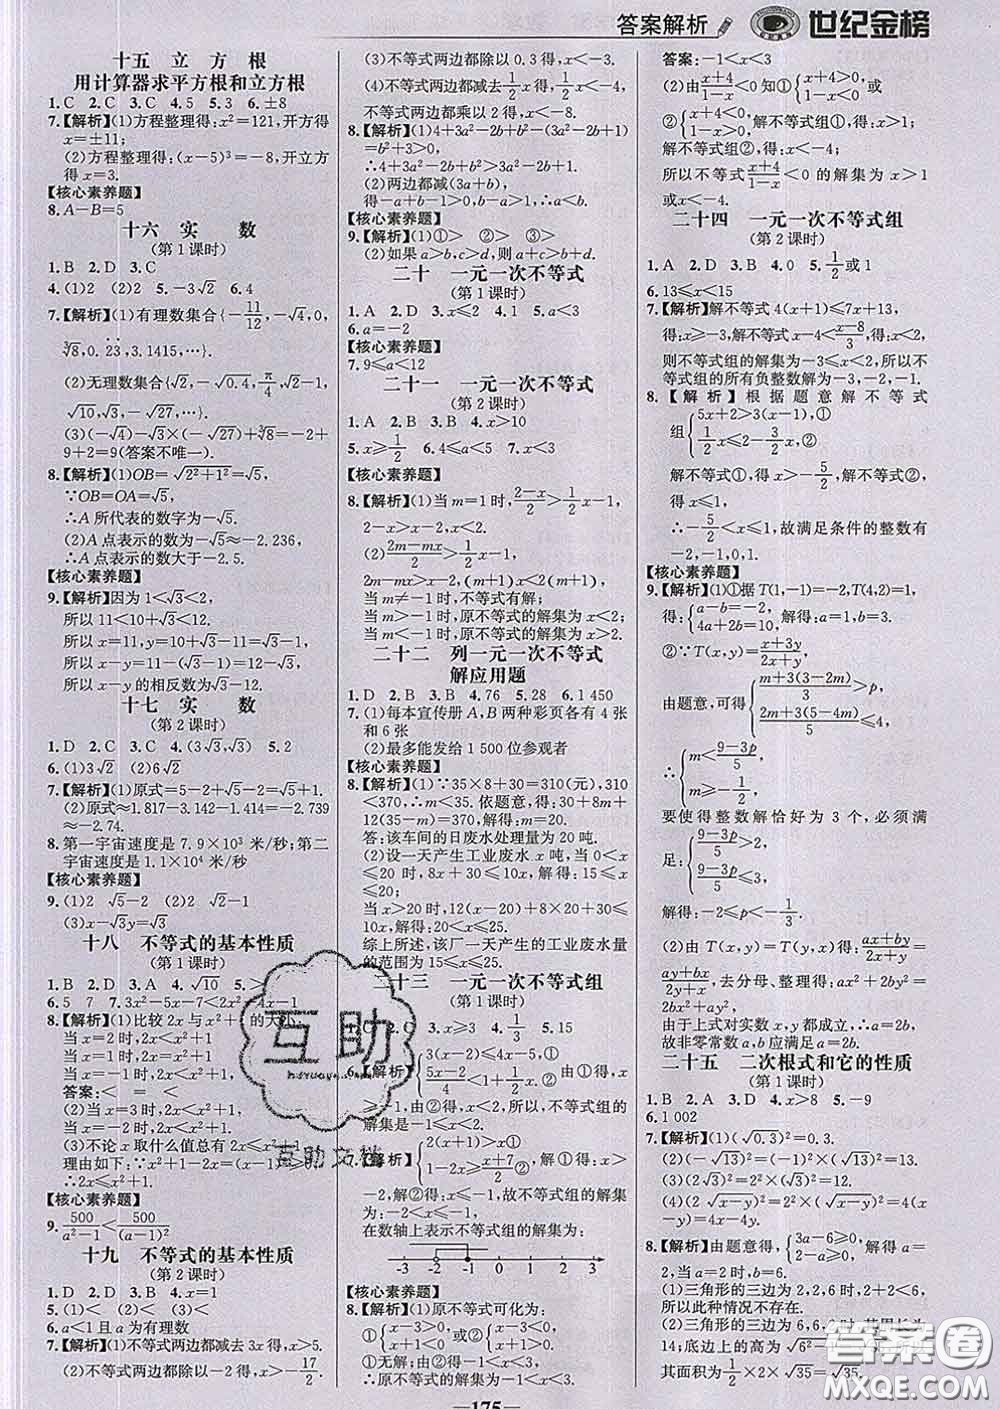 答案解析
世纪金榜
十五 立方根
用计算器求平方根和立方根
1.C 2.C 3.C 4.5 5.3 6.±8
7.【解析】(1)方程整理得:x²=121,开方得
x=±11;
(2)方程整理得:(x-5)³=-8,开立方得:
x=3.
【核心素养题】
8.A-B=5
十六 实 数
(第1课时)
1.B 2.D 3.C
4.(1)2 (2)2 5.-3√2 6.4
7.【解析】(1)有理数集合{-11/12,-√4,0,
∛8,0.23,3.1415,…}.
(2)无理数集合{√2,-√0.4,π/4,√2-1,
√10,√3,-√27,…}.
(3)(-√4)-√3×(-√27)+∛8=-2+
9+2=9(答案不唯一).
8.【解析】(1)OB=√(2²+1²)=√5,
∵OB=OA=√5,
∴A所代表的数字为-√5.
(2)A点表示的数为-√5≈-2.236,
∴A点表示的数大于-2.5.
【核心素养题】
9.【解析】因为1<√3<2,
所以11<10+√3<12.
所以x=11,y=10+√3-11=√3-1,
所以x-y=11-(√3-1)=12-√3,
所以x-y的相反数为√3-12.
十七 实 数
(第2课时)
1.D 2.C 3.C 4.(3√3,√3) 5.2
6.(1)6√3 (2)6√2
7.【解析】(1)原式=5-2+√5-2=√5+1.
(2)原式≈1.817-3.142-1.414≈-2.739
≈-2.74.
8.第一宇宙速度是7.9×10³米/秒;第二
宇宙速度是1.1×10⁴米/秒
【核心素养题】
9.(1)2 √5-2 (2)2 √10-3
(3)x-√3y=√3
十八 不等式的基本性质
(第1课时)
1.B 2.D 3.A 4.√10 5.>
6.5 7 7.3x²-5x-7<2x²-4x-1
8.【解析】(1)比较2x与x²+1的大小:
当x=2时,2x<x²+1;
当x=1时,2x=x²+1;
当x=-1时,2x<x²+1.
答案:< = <
(2)当x=3时,2x<x²+1,
当x=-2时,2x<x²+1.
(3)不论x取什么值总有2x≤x²+1.
∴2x≤x²+1.
【核心素养题】
9.500/(a²-1)<500/(a-1)²
十九 不等式的基本性质
(第2课时)
1.D 2.D 3.A 4.x=1
5.(1)< (2)< (3)< (4)<
6.a<1且a为有理数
7.【解析】(1)不等式两边都减去3x得,x>5.
(2)不等式两边都除以-2得,x>-17/2.
(3)不等式两边都除以0.3得,x<-3.
(4)不等式两边都减去1/2x得,1/2x<-4,
不等式两边都乘以2得,x<-8.
8.【解析】(1)4+3a²-2b+b²-(3a²-2b+1)
=b²+3>0,
∴4+3a²-2b+b²>3a²-2b+1.
(2)两边都减(3a+b),
得-a+b-1<0,a-b>-1,∴a>b.
【核心素养题】
9.【解析】(1)①> ②> ③>
(2)如果a>b,c>d,则a+c>b+d.
二十 一元一次不等式
(第1课时)
1.A 2.D 3.x≤2 4.1 5.a<3
6.a=-2
【核心素养题】
7.9≤a<12
二十一 一元一次不等式
(第2课时)
1.A 2.B 3.B 4.x>10
5.x≥1/2 6.4≤a<5 7.x<3
【核心素养题】
8.【解析】(1)当m=1时,(2-x)/2>1/2x-1,
2-x>x-2,∴x<2.
(2)(2m-mx)/2>1/2x-1,
2m-mx>x-2,(m+1)x<2(m+1),
当m≠-1时,不等式有解;
当m>-1时,原不等式的解集为x<2;
当m<-1时,原不等式的解集为x>2.
二十二 列一元一次不等式
解应用题
1.D 2.B 3.B 4.76 5.28 6.1 450
7.(1)每本宣传册A,B两种彩页各有4张
和6张
(2)最多能发给1 500位参观者
【核心素养题】
8.【解析】(1)∵35×8+30=310(元),310
<370,∴m<35.依题意,得:30+8m+
12(35-m)=370,解得:m=20.
答:该车间的日废水处理量为20吨.
(2)设一天产生工业废水x吨,当0<x
≤20时,8x+30≤10x,解得:15≤x≤20;
当x>20时,12(x-20)+8×20+30
≤10x,解得:20<x≤25.
综上所述,该厂一天产生的工业废水量
的范围为15≤x≤25.
二十三 一元一次不等式组
(第1课时)
C 3.x≥3 4.1/3 5.15
由②得x<1,所以,不等式组的
解集是-1≤x<1.
-2,解②得:x≤-1,故不等式组的解集
为-2<x≤-1,
在数轴上表示不等式组的解集为:
-3 -2 -1 0 1 2 3
【核心素养题】
8.【解析】(1)原不等式可化为:
①{x-3>0 x+1<0 ②{x-3<0 x+1>0
①无解;由②得-1<x<3,
∴原不等式的解集为-1<x<3.
答案:-1<x<3
(2)由(x+4)/(1-x)<0知①{x+4>0 1-x<0或
②{x+4<0 1-x>0,解不等式组①,得:x>1;
解不等式组②,得:x<-4.
所以不等式(x+4)/(1-x)<0的解集为x>1
或x<-4.
二十四 一元一次不等式组
(第2课时)
1.A 2.D 3.B 4.0 5.1/2或1
6.13≤x≤15
7.【解析】解不等式4(x+1)≤7x+13,
得:x≥-3,解不等式x-4<(x-8)/3,
得:x<2,
则不等式组的解集为-3≤x<2,所以不
等式组的所有负整数解为-3,-2,-1.
8.【解析】根据题意解不等式
组{5x+2>3(x-1),① 1/2x≤2-3/2x,②
解不等式①,得:x>-5/2,解不等式②,
得:x≤1,
∴-5/2<x≤1,故满足条件的整数有
-2,-1,0,1.
【核心素养题】
9.【解析】(1)①据T(1,-1)=-2,T(4,2)=1,
得:{a-b=-2, 4a+2b=10,解得:a=1,b=3.
②∵T(x,y)=(x+3y)/(2x+y),
由题意,可得{(m+3(3-2m))/3>p, (2m+3(5-4m))/5≤4,
∴{m<(9-3p)/5 m≥-1/2,
要使得整数解恰好为3个,必须满
足:{(9-3p)/5>2 (9-3p)/5≤3
解得:-2≤p<-1/3.
(2)由T(x,y)=T(y,x)得:(ax+by)/(2x+y)=
(ay+bx)/(2y+x),去分母、整理得:ax²+2by²=
2bx²+ay²,
由于上式对实数x,y都成立,∴a=2b,
故非零常数a,b应满足a=2b.
二十五 二次根式和它的性质
(第1课时)
1.B 2.D 3.D 4.x>8 5.-9
6.1 002
7.【解析】(1)(√0.3)²=0.3.
(2)(-√13)²=(-1)²×(√13)²=13.
(4)(2√(x-y))²=2²×(√(x-y))²=4(x-
y)=4x-4y.
8.【解析】由题意得,{3a-6≥0, 2-a≥0,解得:a=2,
(1)三角形的三边为2,2,6时,2+2<6,
所以此种情况不存在.
(2)三角形的三边为6,6,2时,其周长为
14;底边上的高为
其面积为1/2×2×√35=√35.
互助
互助文档
答案圈
MXQE.COM
—175—